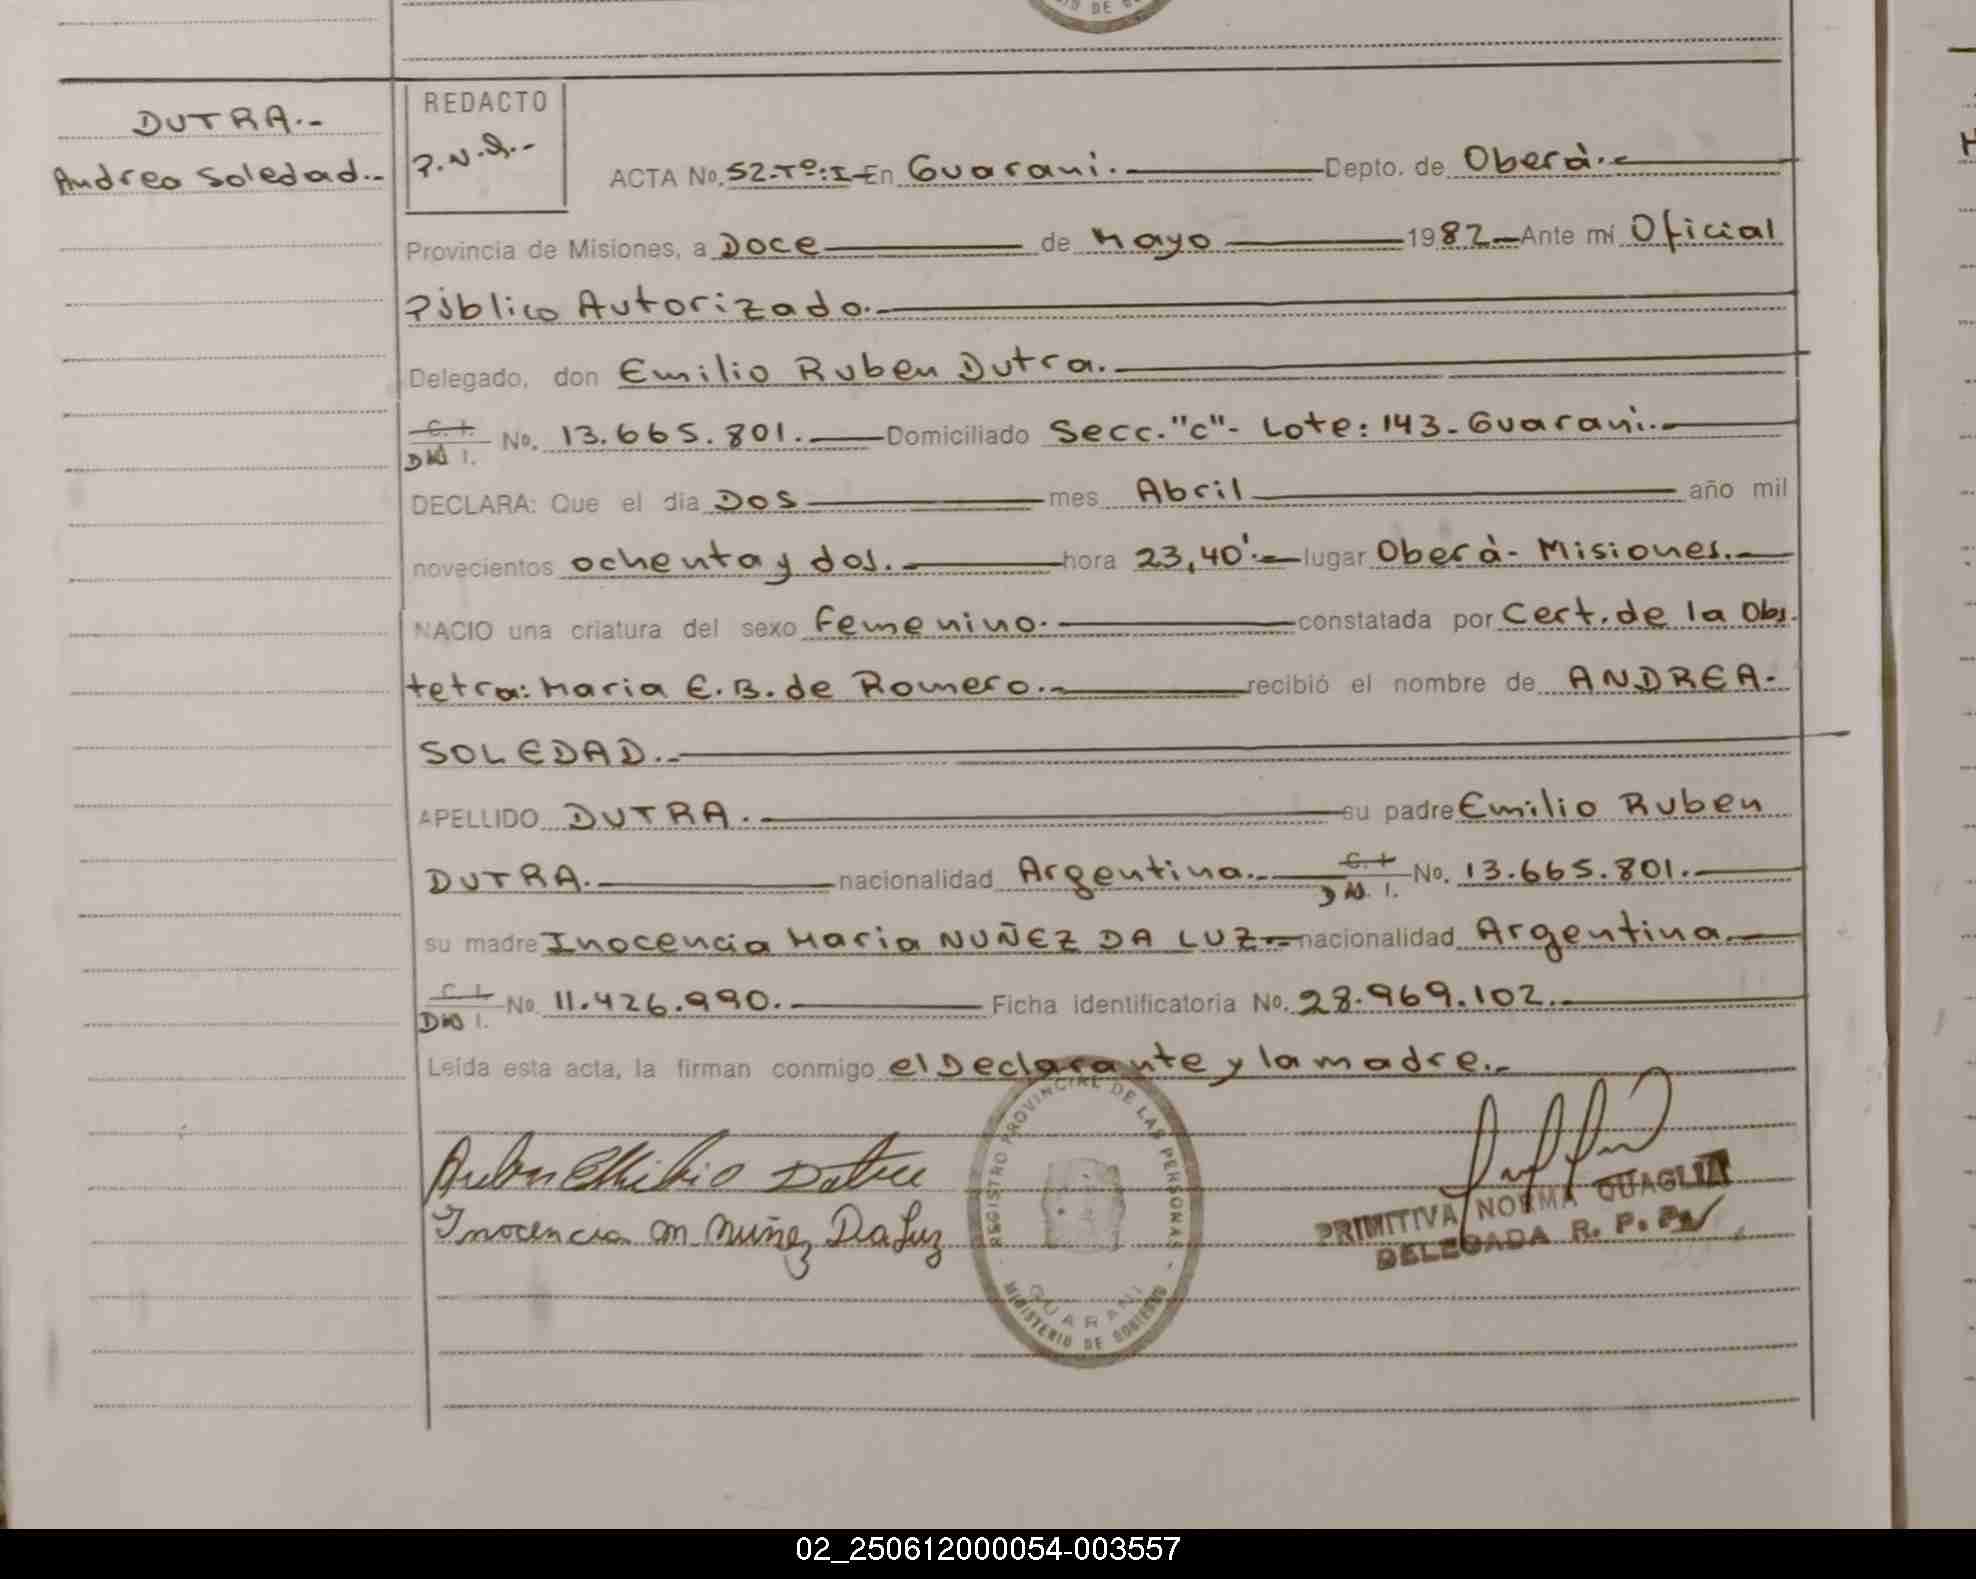 DUTRA.-
Andrea Soledad.-
REDACTO
P.N.Q.-
ACTA No. 52.Tº:I- En Guarani. Depto. de Oberà.-
Provincia de Misiones, a Doce de Mayo 1982- Ante mi Oficial
Público Autorizado.-
Delegado, don Emilio Ruben Dutra.
C. I.
D N I. No. 13.665.801. Domiciliado Secc."C"- Lote: 143- Guarani.-
DECLARA: Que el dia Dos mes Abril año mil
novecientos ochenta y dos. hora 23,40'.- lugar Oberà- Misiones.-
NACIO una criatura del sexo femenino. constatada por Cert. de la Obs.
tetra: Maria E. B. de Romero.- recibió el nombre de ANDREA-
SOLEDAD.-
APELLIDO DUTRA. su padre Emilio Ruben
DUTRA. nacionalidad Argentina.- C. I.
D N I. No. 13.665.801.-
su madre Inocencia Maria NUÑEZ DA LUZ.- nacionalidad Argentina.-
C. I.
D N I. No. 11.426.990. Ficha identificatoria No. 28.969.102.-
Leída esta acta, la firman conmigo el Declarante y la madre.-
Ruben Emilio Dutra
Inocencia M Nuñez Da Luz
REGISTRO PROVINCIAL DE LAS PERSONAS
GUARANI
MINISTERIO DE GOBIERNO
PRIMITIVA NORMA QUAGLIA
DELEGADA R. P. P.
02_250612000054-003557